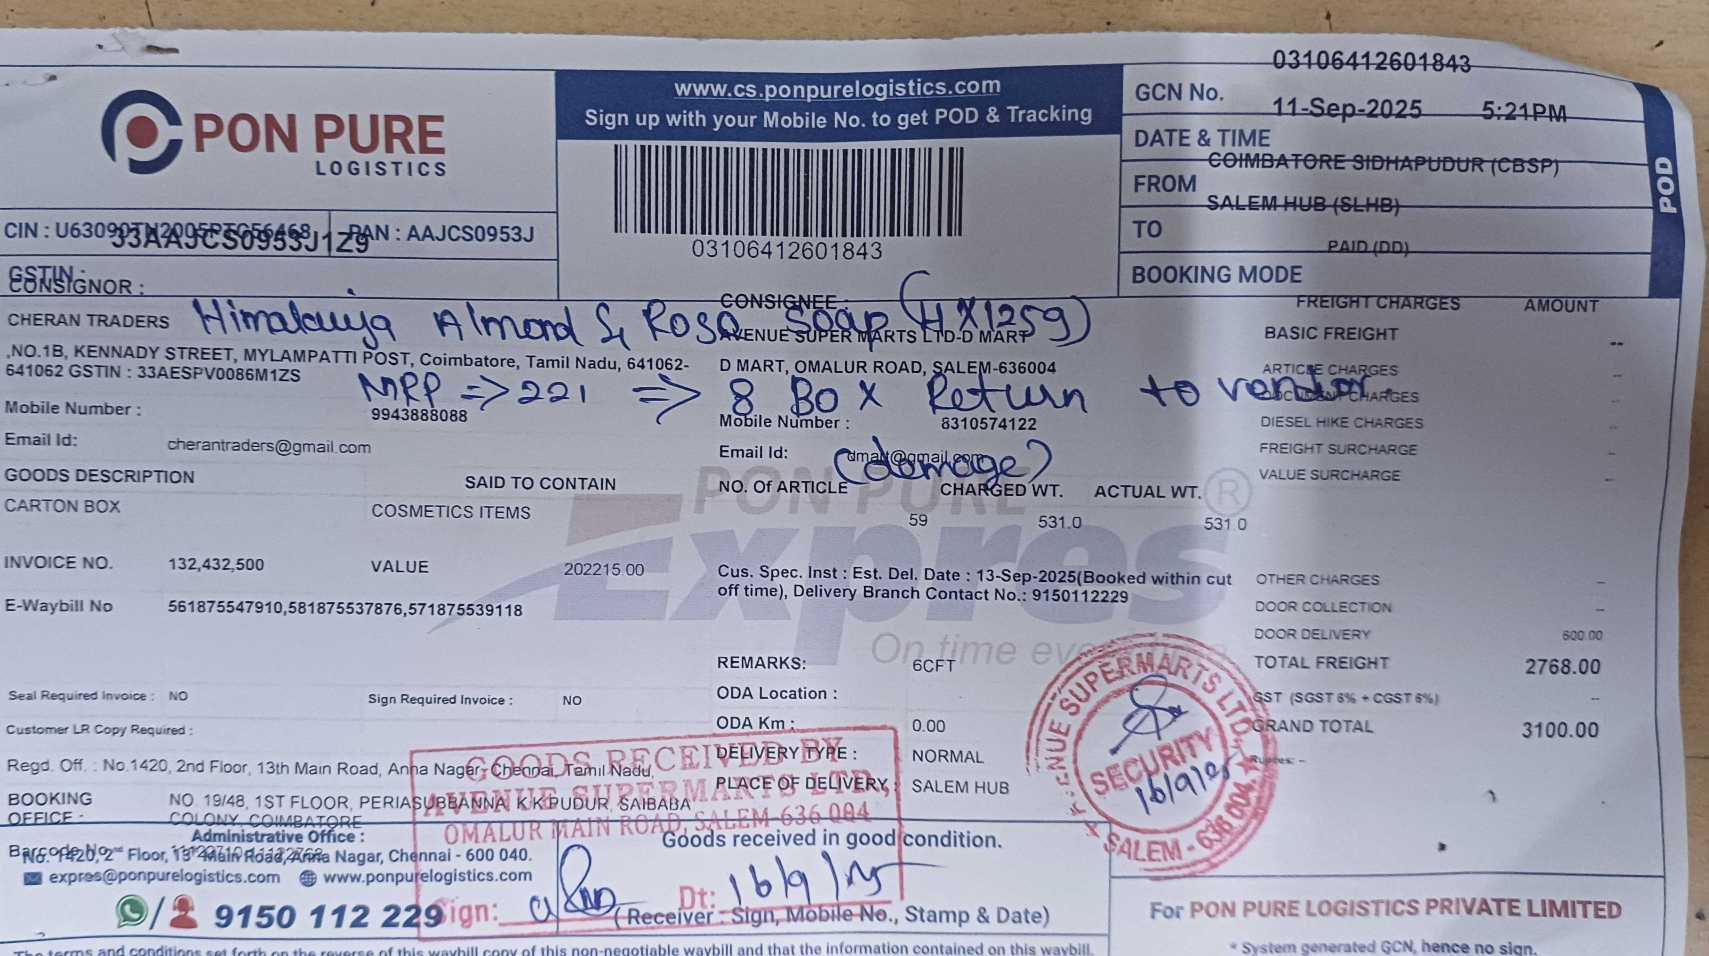 03106412601843
www.cs.ponpurelogistics.com
Sign up with your Mobile No. to get POD & Tracking
GCN No.
11-Sep-2025 5:21PM
PON PURE
LOGISTICS
DATE & TIME
COIMBATORE SIDHAPUDUR (CBSP)
POD
FROM
SALEM HUB (SLHB)
TO
CIN : PAN : AAJCS0953J
33AAJCS0953J1Z9
03106412601843
PAID (DD)
BOOKING MODE
GSTIN :
CONSIGNOR :
CONSIGNEE :
FREIGHT CHARGES AMOUNT
Himalauya Almond & Rosa Soap (4X125g)
CHERAN TRADERS
AVENUE SUPER MARTS LTD-D MART
BASIC FREIGHT --
,NO.1B, KENNADY STREET, MYLAMPATTI POST, Coimbatore, Tamil Nadu, 641062-
641062 GSTIN : 33AESPV0086M1ZS
D MART, OMALUR ROAD, SALEM-636004
ARTICLE CHARGES --
MRP => 221 => 8 Box Return to vendor
(damage)
DOCUMENT CHARGES --
Mobile Number : 9943888088
Mobile Number : 8310574122
DIESEL HIKE CHARGES --
Email Id: cherantraders@gmail.com
Email Id: dmart@gmail.com
FREIGHT SURCHARGE --
GOODS DESCRIPTION SAID TO CONTAIN
NO. Of ARTICLE CHARGED WT. ACTUAL WT.
VALUE SURCHARGE --
CARTON BOX COSMETICS ITEMS
59 531.0 531.0
PON PURE
Expres
®
On time
INVOICE NO. 132,432,500 VALUE 202215.00
Cus. Spec. Inst : Est. Del. Date : 13-Sep-2025(Booked within cut
off time), Delivery Branch Contact No.: 9150112229
OTHER CHARGES --
E-Waybill No 561875547910,581875537876,571875539118
DOOR COLLECTION --
DOOR DELIVERY 600.00
REMARKS: 6CFT
TOTAL FREIGHT 2768.00
Seal Required Invoice : NO Sign Required Invoice : NO
ODA Location :
GST (SGST 6% + CGST 6%) --
Customer LR Copy Required :
ODA Km : 0.00
GRAND TOTAL 3100.00
DELIVERY TYPE : NORMAL
Rupees: --
Regd. Off. : No.1420, 2nd Floor, 13th Main Road, Anna Nagar, Chennai, Tamil Nadu,
PLACE OF DELIVERY: SALEM HUB
BOOKING
OFFICE :
NO. 19/48, 1ST FLOOR, PERIASUBBANNA, K.K.PUDUR, SAIBABA
COLONY, COIMBATORE
GOODS RECEIVED BY
AVENUE SUPERMARTS LTD,
OMALUR MAIN ROAD, SALEM-636 004
Sign:
Dt: 16/9/25
AVENUE SUPERMARTS LTD.
SECURITY
16/9/25
SALEM - 636 004
Administrative Office :
Barcode No
No. 1420, 2nd Floor, 13th Main Road, Anna Nagar, Chennai - 600 040.
expres@ponpurelogistics.com www.ponpurelogistics.com
9150 112 229
Goods received in good condition.
(Receiver : Sign, Mobile No., Stamp & Date)
For PON PURE LOGISTICS PRIVATE LIMITED
* System generated GCN, hence no sign.
The terms and conditions set forth on the reverse of this waybill copy of this non-negotiable waybill and that the information contained on this waybill.